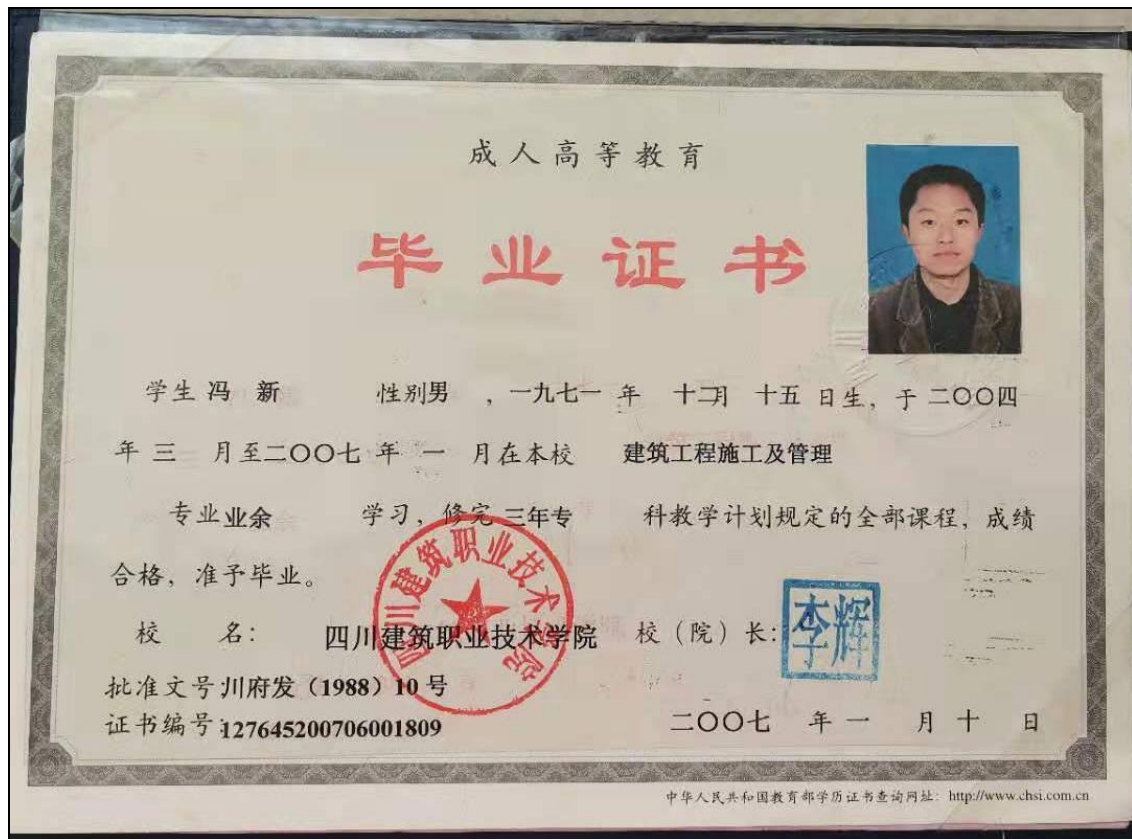 成人高等教育
毕业证书
学生 冯 新 性别男 ,一九七一 年 十二月 十五 日生, 于 二〇〇四
年 三 月至二〇〇七 年 一 月在本校 建筑工程施工及管理
专业业余 学习, 修完 三年专 科教学计划规定的全部课程, 成绩
合格, 准予毕业。
校 名: 四川建筑职业技术学院 校(院)长:
四川建筑职业技术学院
李辉
批准文号:川府发(1988)10号
证书编号:127645200706001809
二〇〇七 年 一 月 十 日
中华人民共和国教育部学历证书查询网址: http://www.chsi.com.cn